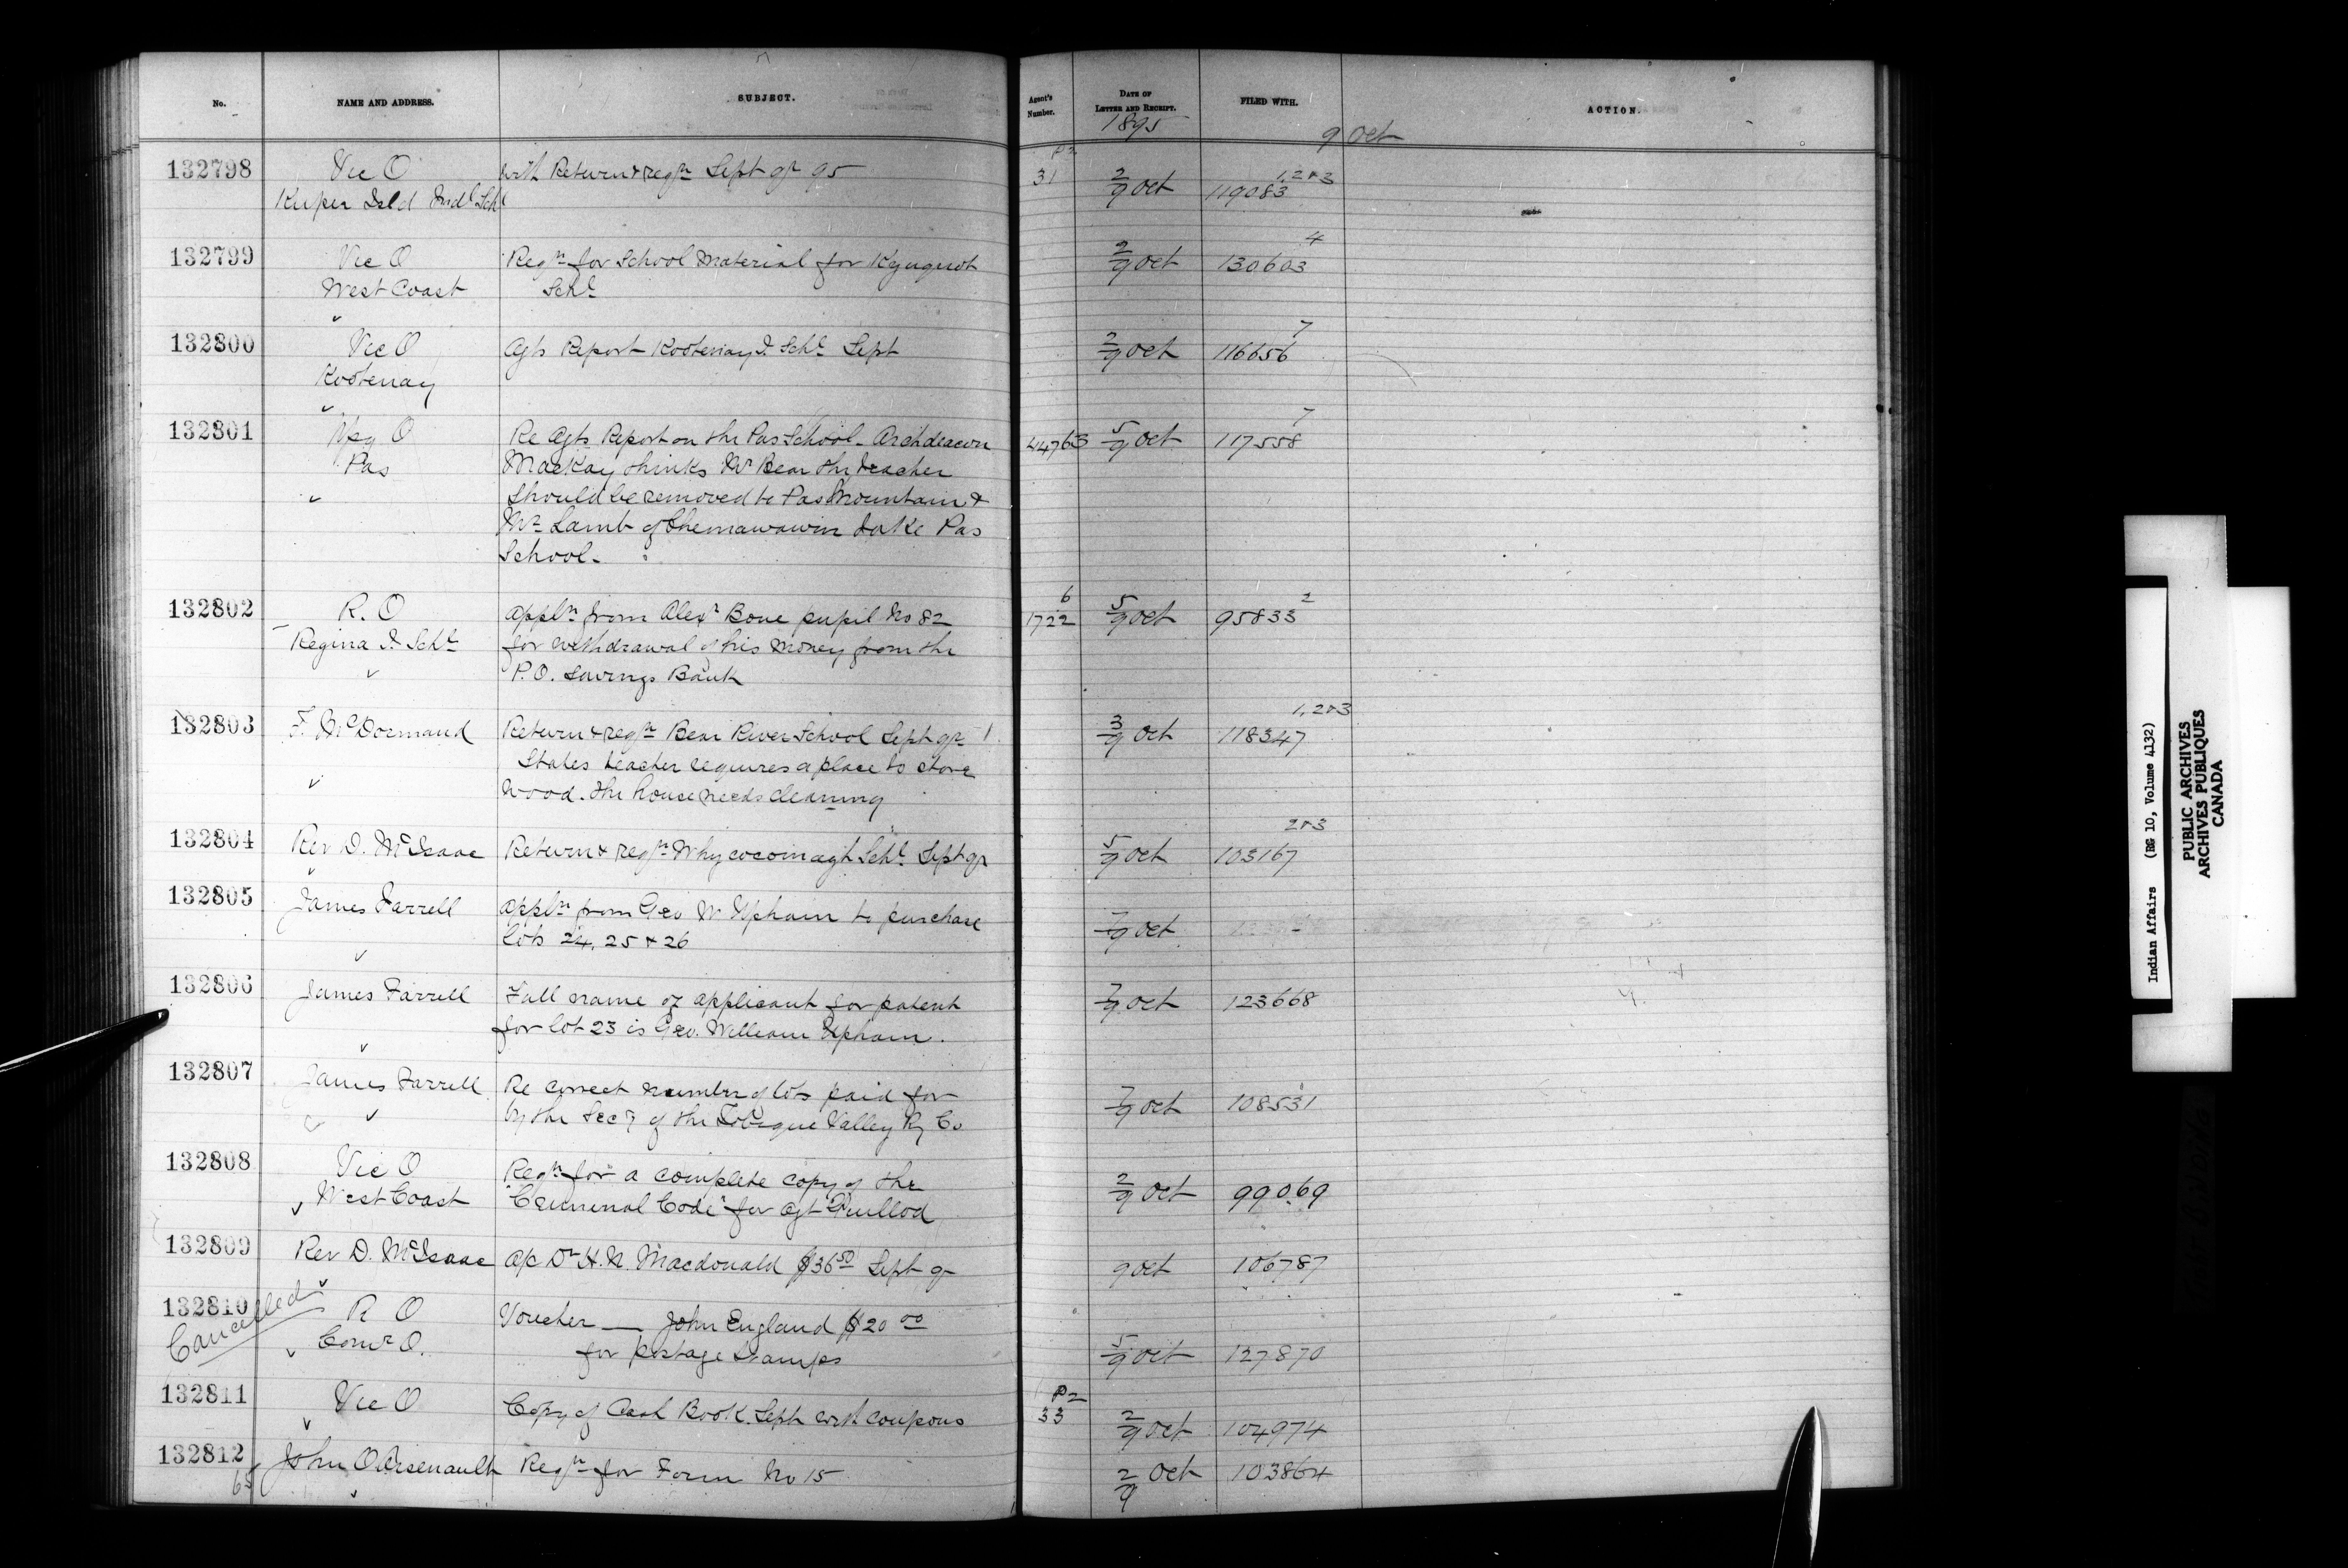 No. NAME AND ADDRESS. SUBJECT. Agent's Number. DATE OF LETTER AND RECEIPT. FILED WITH. ACTION.
1895 9 Oct
132798 Vic O with Return & reqn Sept qr 95 P2 31 2/9 Oct 119083 1, 2 & 3
Kuper Isld Indl Schl
132799 Vic O Reqn for School Material for Kyuquot 2/9 Oct 130603 4
West Coast Schl
132800 Vic O Agts Report Kootenay I. Schl Sept 2/9 Oct 116656 7
Kootenay
132801 Wpg O Re Agts Report on the Pas School - Archdeacon 44763 5/9 Oct 117558 7
Pas MacKay thinks Mr Bear the teacher
should be removed to Pas Mountain &
Mr Lamb of Chemawawin take Pas
School -
132802 R. O Appln from Alexr Bone pupil No 82 6 1722 5/9 Oct 95833 2
Regina I. Schl for withdrawal of his money from the
P.O. Savings Bank
132803 F. McDormand Return & reqn Bear River School Sept qr 3/9 Oct 118347 1, 2 & 3
States teacher requires a place to store
wood. the house needs cleaning
132804 Rev D. McIsaac Return & reqn Whycocomagh Schl Sept qr 5/9 Oct 103167 2 & 3
132805 James Farrell Appln from Geo W Upham to purchase 7/9 Oct
lots 24, 25 & 26
132806 James Farrell Full name of applicant for patent 7/9 Oct 123668
for lot 23 is Geo. William Upham.
132807 James Farrell Re correct number of lots paid for 7/9 Oct 108531
by the Secy of the Tobique Valley Ry Co
132808 Vic O Reqn for a complete copy of the 2/9 Oct 99069
West Coast "Criminal Code" for Agt Guillod
132809 Rev D. McIsaac A/c Dr H. N. Macdonald $36 50 Sept qr 9 Oct 106787
132810 R O Voucher — John England $20 00
Cancelled Comr O. for postage stamps 5/9 Oct 127870
132811 Vic O Copy of Cash Book Sept with coupons P2 33 2/9 Oct 104974
132812 John O Arsenault Reqn for Form No 15 2/9 Oct 103864
65
Indian Affairs (RG 10, Volume 4132)
PUBLIC ARCHIVES
ARCHIVES PUBLIQUES
CANADA